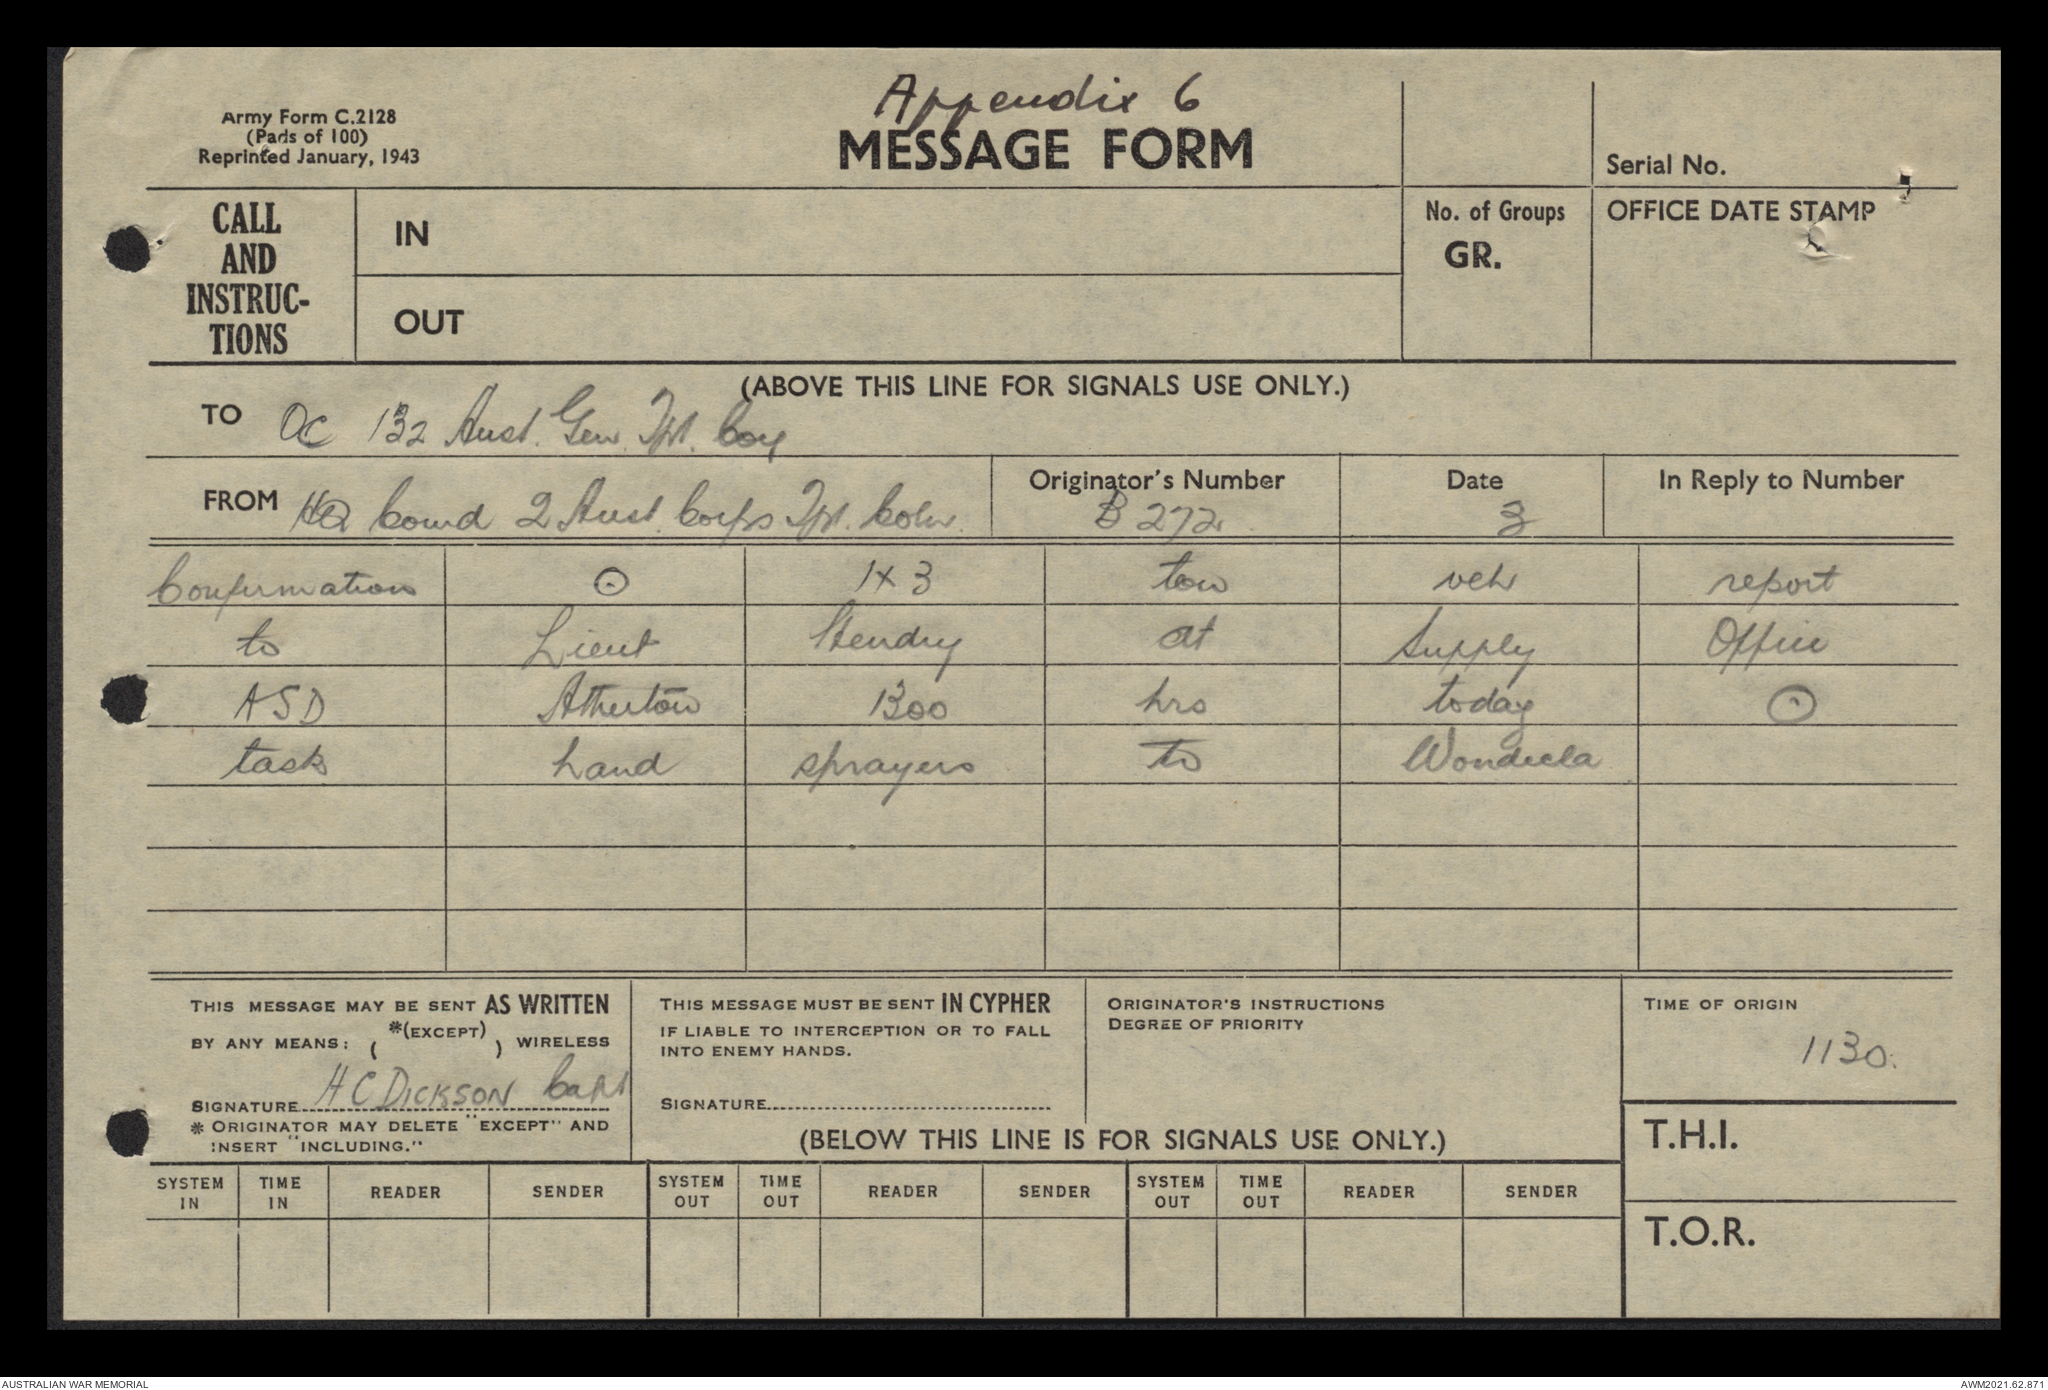 Appendix 6
Army Form C.2128
(Pads of 100)
Reprinted January, 1943
MESSAGE FORM
Serial No.
CALL
AND
INSTRUC-
TIONS
IN
OUT
No. of Groups
GR.
OFFICE DATE STAMP
(ABOVE THIS LINE FOR SIGNALS USE ONLY.)
TO OC 132 Aust. Gen. Tpt. Coy
FROM HQ Comd 2 Aust. Corps Tpt. Coln.
Originator's Number
B 272
Date
3
In Reply to Number
Confirmation ⊙ 1 x 3 ton veh report
to Lieut Hendry at Supply Office
ASD Atherton 1300 hrs today ⊙
task hand sprayers to Wondecla
THIS MESSAGE MAY BE SENT AS WRITTEN
BY ANY MEANS: ( *(EXCEPT) ) WIRELESS
SIGNATURE H C DICKSON Capt
* ORIGINATOR MAY DELETE "EXCEPT" AND
INSERT "INCLUDING."
THIS MESSAGE MUST BE SENT IN CYPHER
IF LIABLE TO INTERCEPTION OR TO FALL
INTO ENEMY HANDS.
SIGNATURE
ORIGINATOR'S INSTRUCTIONS
DEGREE OF PRIORITY
TIME OF ORIGIN
1130.
(BELOW THIS LINE IS FOR SIGNALS USE ONLY.)
T.H.I.
T.O.R.
SYSTEM IN TIME IN READER SENDER SYSTEM OUT TIME OUT READER SENDER SYSTEM OUT TIME OUT READER SENDER
AUSTRALIAN WAR MEMORIAL
AWM2021.62.871